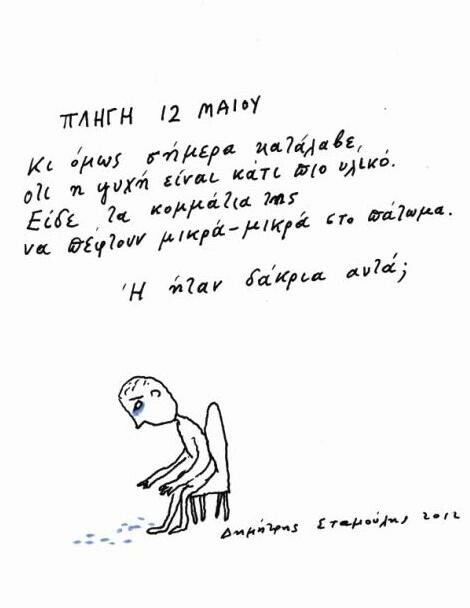 ΠΛΗΓΗ 12 ΜΑΙΟΥ
Κι όμως σήμερα κατάλαβε,
ότι η ψυχή είναι κάτι πιο υλικό.
Είδε τα κομμάτια της
να πέφτουν μικρά-μικρά στο πάτωμα.
Ή ήταν δάκρια αυτά;
Δημήτρης Σταμούλης 2012